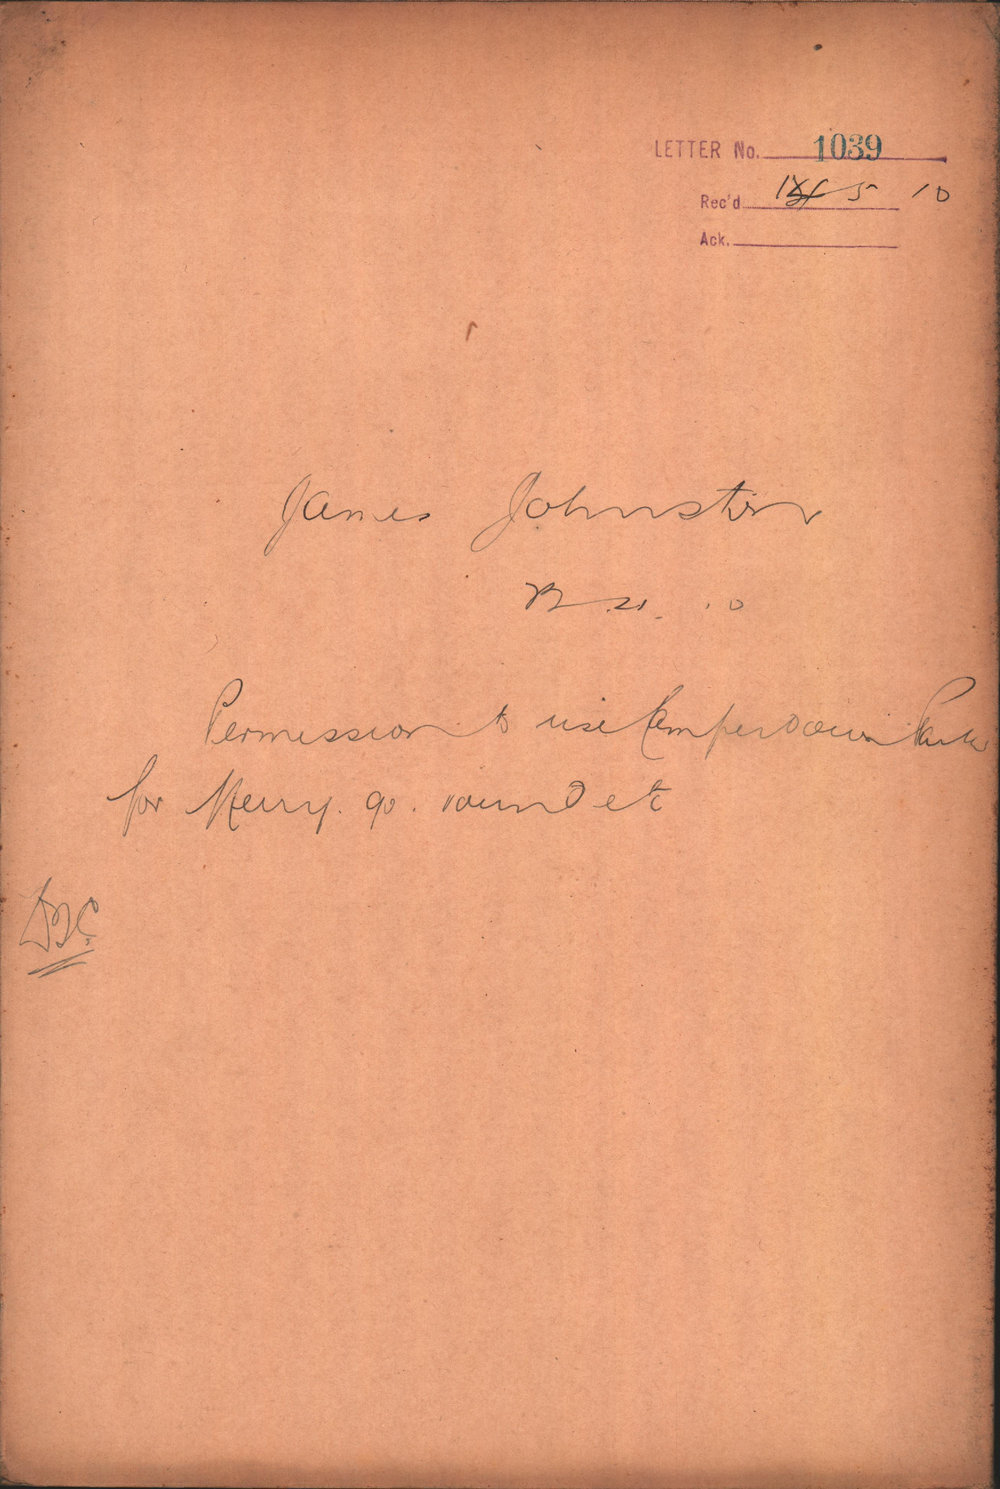 LETTER No. 1039
Rec'd 5 10
Ack.
James Johnston
Permission to use Camperdown Park
for Merry. go. round etc